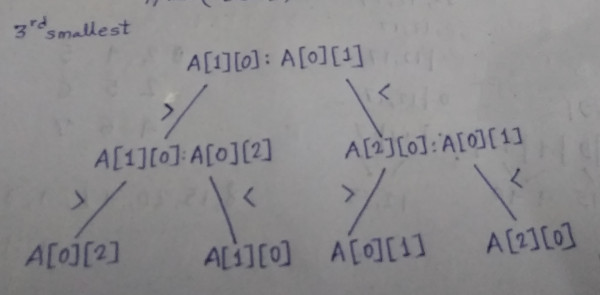 3rd smallest
A[1][0] : A[0][1]
> <
A[1][0] : A[0][2] A[2][0] : A[0][1]
> < > <
A[0][2] A[1][0] A[0][1] A[2][0]